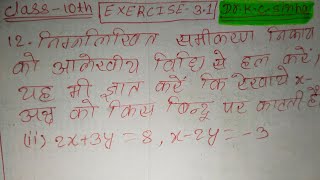 class-10th EXERCISE-3.1 Dr. K.C. Sinha
12. निम्नलिखित समीकरण निकाय
को आलेखीय विधि से हल करें,
यह भी ज्ञात करें कि रेखायें x-
अक्ष को किस बिन्दू पर काटती हैं
(ii) 2x+3y=8, x-2y=-3